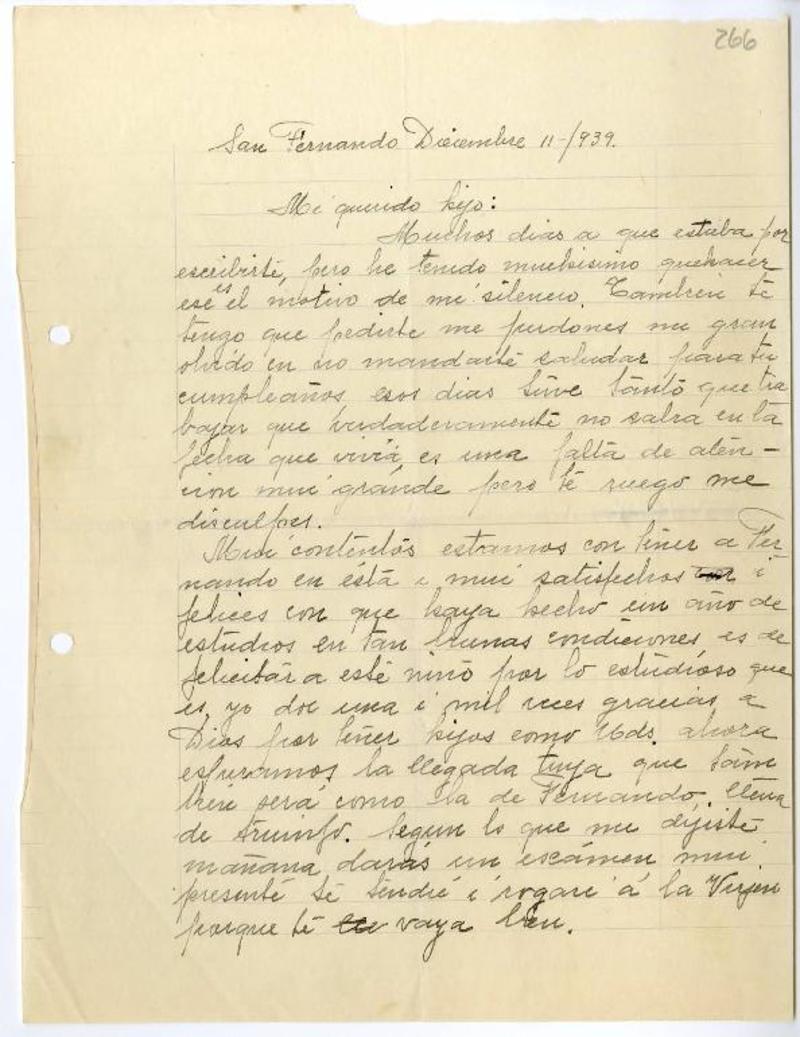 266
San Fernando Diciembre 11-/939.
Mi querido hijo:
Muchos dias a que estaba por
escribirte, pero he tenido muchisimo quehacer
ese es el motivo de mi silencio. Tambien te
tengo que pedirte me perdones mi gran
olvido en no mandarte saludar para tu
cumpleaños esos dias tuve tanto que tra
bajar que verdaderamente no sabia en la
fecha que vivia es una falta de aten-
cion mui grande pero te ruego me
disculpes.
Mui contentos estamos con tener a Fer
nando en ésta i mui satisfechos i
felices con que haya hecho un año de
estudios en tan buenas condiciones, es de
felicitar a este niño por lo estudioso que
es, yo doi una i mil veces gracias a
Dios por tener hijos como Uds. ahora
esperamos la llegada tuya que tam
bien será como la de Fernando, llena
de triunfo. Segun lo que me dijiste
mañana darás un escámen mui
presente te tendré i rogaré á la Virjen
porque te vaya bien.